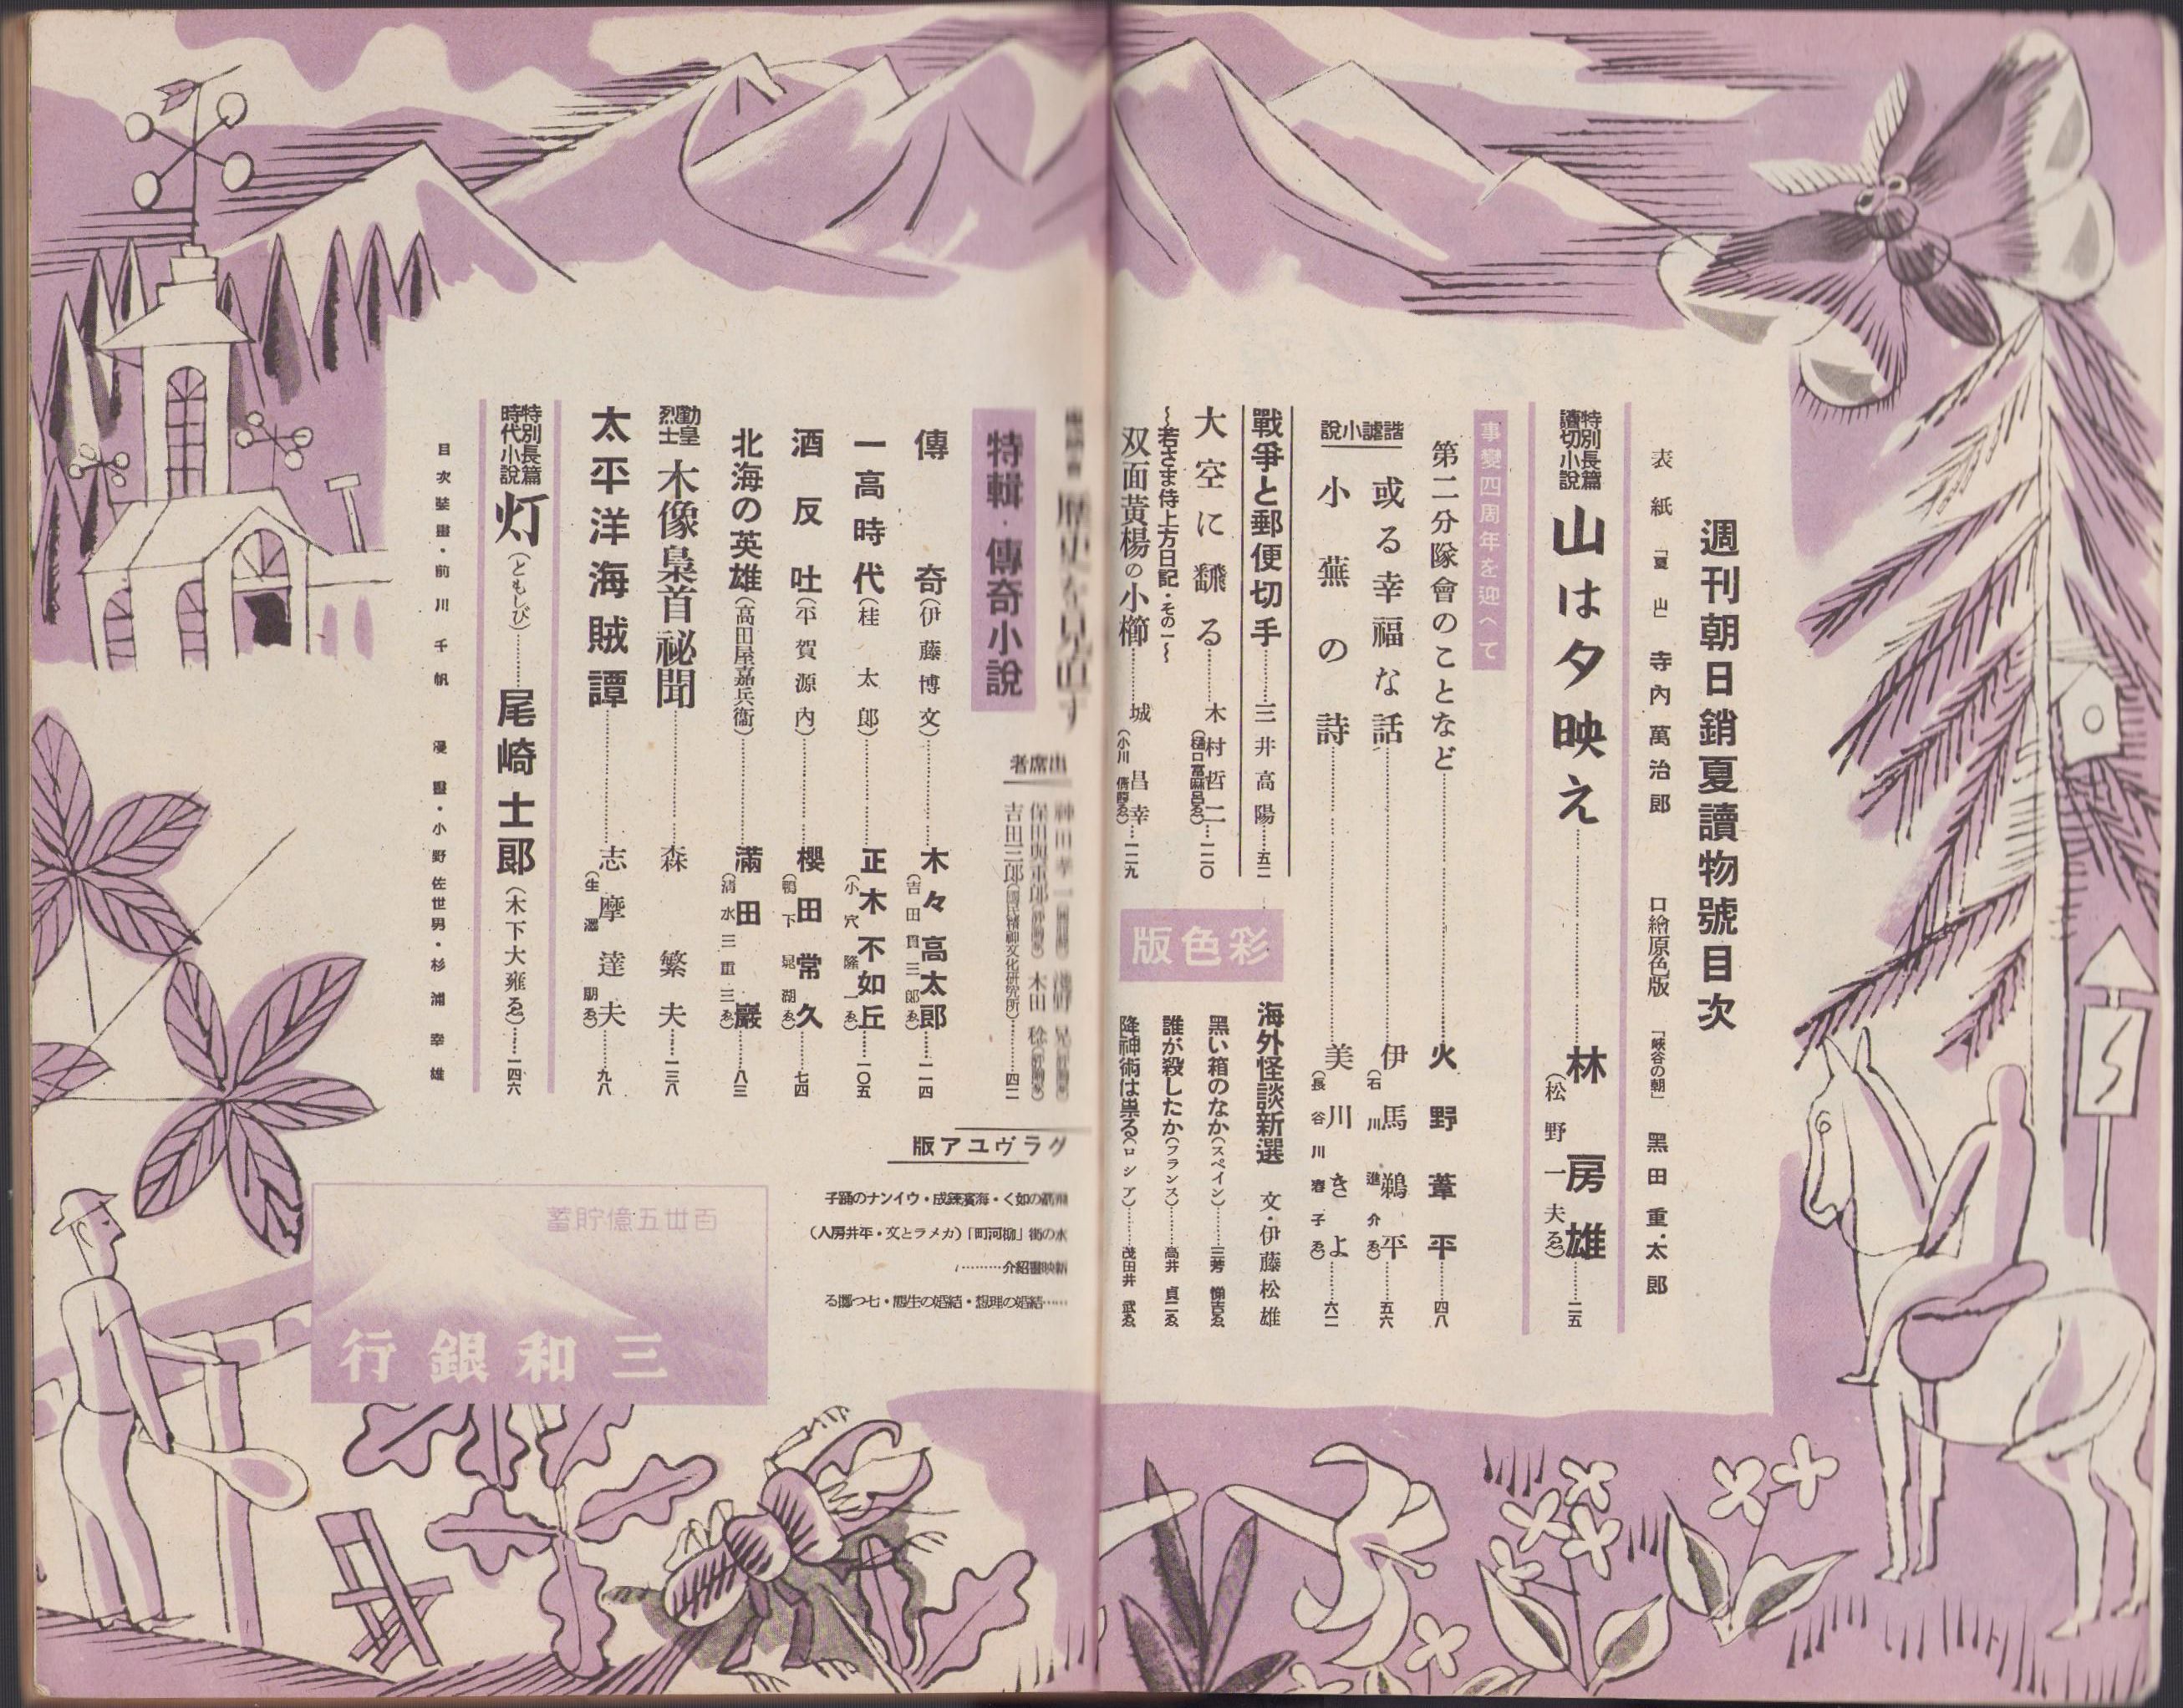 週刊朝日銷夏讀物號目次
表紙「夏山」寺內萬治郎
口繪原色版「峽谷の朝」黑田重太郎
特別長篇讀切小說
山は夕映え………林房雄…二五
(松野一夫ゑ)
事變四周年を迎へて
第二分隊會のことなど………火野葦平…四八
諧謔小說
或る幸福な話………伊馬鵜平…五六
(石川進介ゑ)
小蕪の詩………美川きよ…六二
(長谷川春子ゑ)
戰爭と郵便切手………三井高陽…五二
大空に飜る………木村哲二…一二〇
(樋口富麻呂ゑ)
〜若さま侍上方日記・その一〜
双面黃楊の小櫛………城昌幸…一二九
彩色版
海外怪談新選 文・伊藤松雄
黑い箱のなか(スペイン)………三芳悌吉ゑ
誰が殺したか(フランス)………高井貞二ゑ
降神術は祟る(ロシア)………茂田井武ゑ
歷史を見直す
出席者
保田與重郎
木田稔
吉田三郎(國民精神文化硏究所)………四二
特輯・傳奇小說
傳奇(伊藤博文)………木々高太郎…一一四
(吉田貫三郎ゑ)
一高時代(桂太郎)………正木不如丘…一〇五
(小穴隆一ゑ)
酒反吐(平賀源內)………櫻田常久…七四
(鴨下晁湖ゑ)
北海の英雄(高田屋嘉兵衞)………滿田巖…八三
(淸水三重三ゑ)
勤皇烈士
木像梟首祕聞………森繁夫…一三八
太平洋海賊譚………志摩達夫…九八
(生澤朗ゑ)
特別長篇時代小說
灯(ともしび)………尾崎士郎(木下大雍ゑ)…一四六
目次裝畫・前川千帆
漫畫・小野佐世男・杉浦幸雄
グラヴユア版
の如く・海濱鍊成・ウインナの踊子
水の街「柳河町」(カメラと文・平井房人)
新映畫紹介………
……結婚の理想・結婚の生態・七つ擲る
百卅五億貯蓄
三和銀行